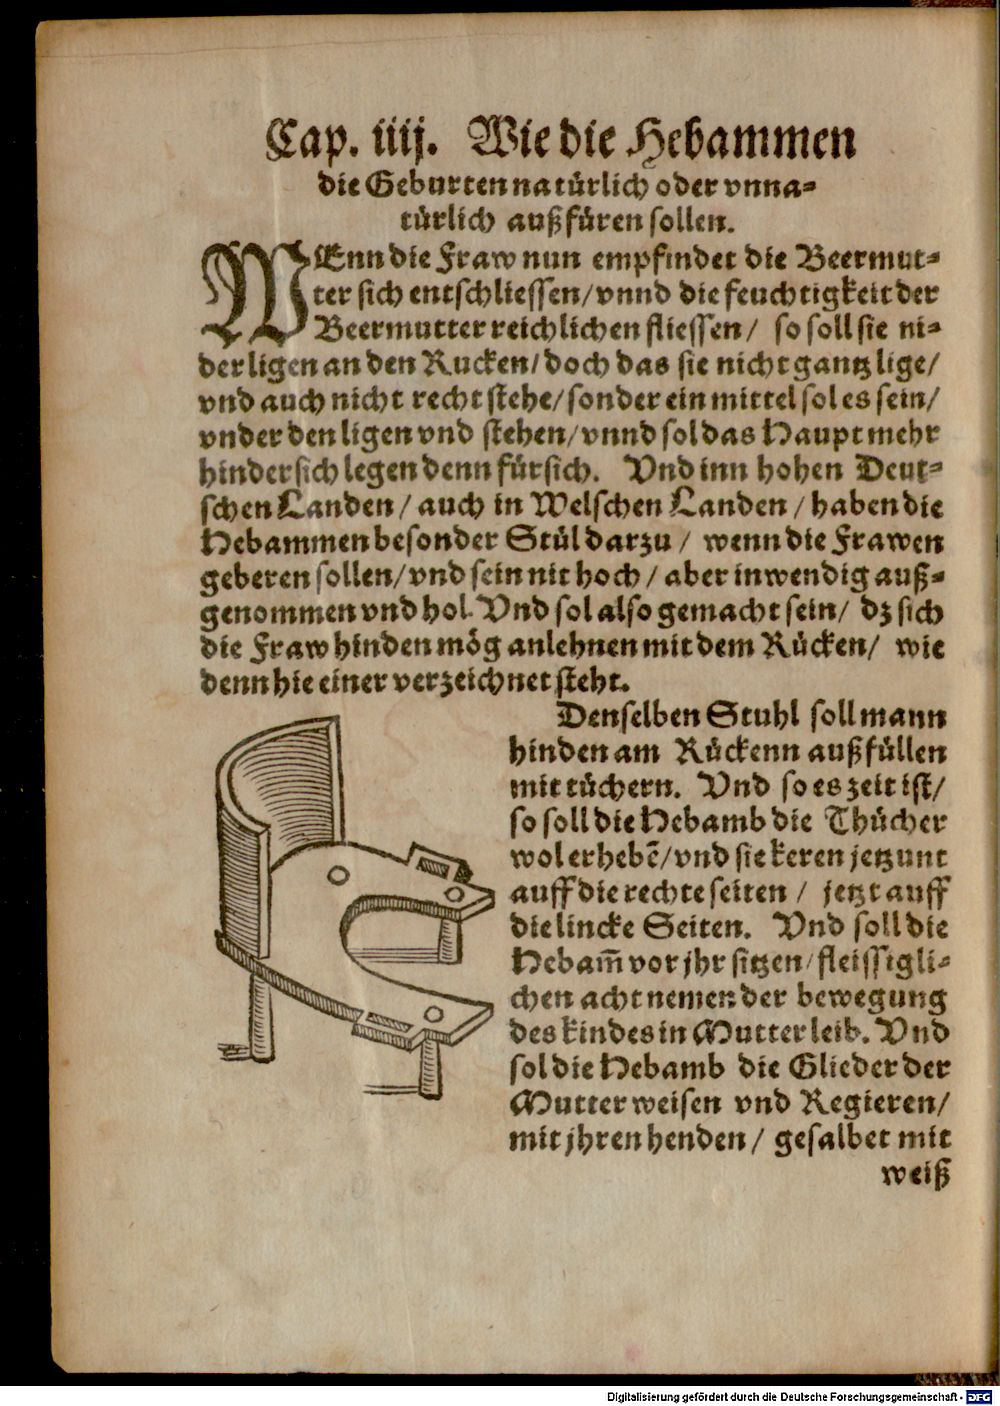 Cap. iiij. Wie die Hebammen
die Geburten natürlich oder vnna-
türlich außfüren sollen.
WEnn die Fraw nun empfindet die Beermut-
ter sich entschliessen/ vnnd die feuchtigkeit der
Beermutter reichlichen fliessen/ so soll sie ni-
der ligen an den Rucken/ doch das sie nicht gantz lige/
vnd auch nicht recht stehe/ sonder ein mittel sol es sein/
vnder den ligen vnd stehen/ vnnd sol das Haupt mehr
hindersich legen denn fürsich. Vnd inn hohen Deut-
schen Landen/ auch in Welschen Landen/ haben die
Hebammen besonder Stül darzu/ wenn die Frawen
geberen sollen/ vnd sein nit hoch/ aber inwendig auß-
genommen vnd hol. Vnd sol also gemacht sein/ dz sich
die Fraw hinden mög anlehnen mit dem Rücken/ wie
denn hie einer verzeichnet steht.
Denselben Stuhl soll mann
hinden am Rückenn außfüllen
mit tüchern. Vnd so es zeit ist/
so soll die Hebamb die Thücher
wol erhebẽ/ vnd sie keren jetzunt
auff die rechte seiten/ jetzt auff
die lincke Seiten. Vnd soll die
Hebam̃ vor jhr sitzen/ fleissigli-
chen acht nemen der bewegung
des kindes in Mutter leib. Vnd
sol die Hebamb die Glieder der
Mutter weisen vnd Regieren/
mit jhren henden/ gesalbet mit
weiß
Digitalisierung gefördert durch die Deutsche Forschungsgemeinschaft - DFG